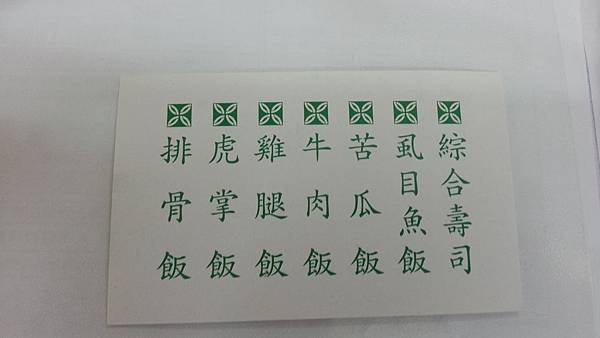 綜合壽司
虱目魚飯
苦瓜飯
牛肉飯
雞腿飯
虎掌飯
排骨飯